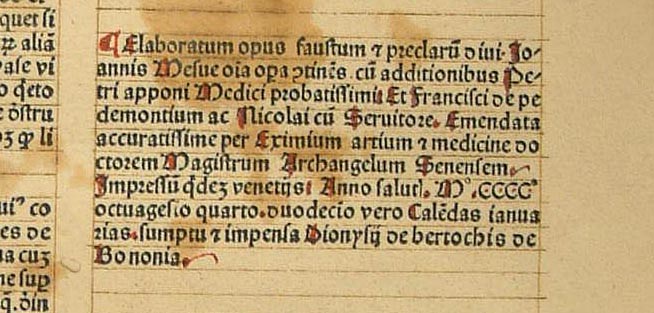 quet si
ꝶ aliã
vase vi
o q̃ꝫto
e õstru
ꝫ ꝙ li
ui⁹ co
es de
na cuꝫ
ne suꝑ
q̃. ðin
¶ Elaboratum opus faustum ⁊ preclarũ diui. Jo-
annis Mesue oĩa oꝑa ↄtinẽs. cũ additionibus Pe-
tri apponi Medici probatissimi: Et Francisci de pe
demontium ac Nicolai cũ Seruitore. Emendata
accuratissime per Eximium artium ⁊ medicine do
ctorem Magistrum Archangelum Senensem.
Impressũ q̃deꝫ venetijs: Anno salutꝭ. M°.CCCC°
octuagesĩo quarto. duodecĩo vero Calẽdas ianua
rias. sumptu ⁊ impensa Dionysij de bertochis de
Bononia.